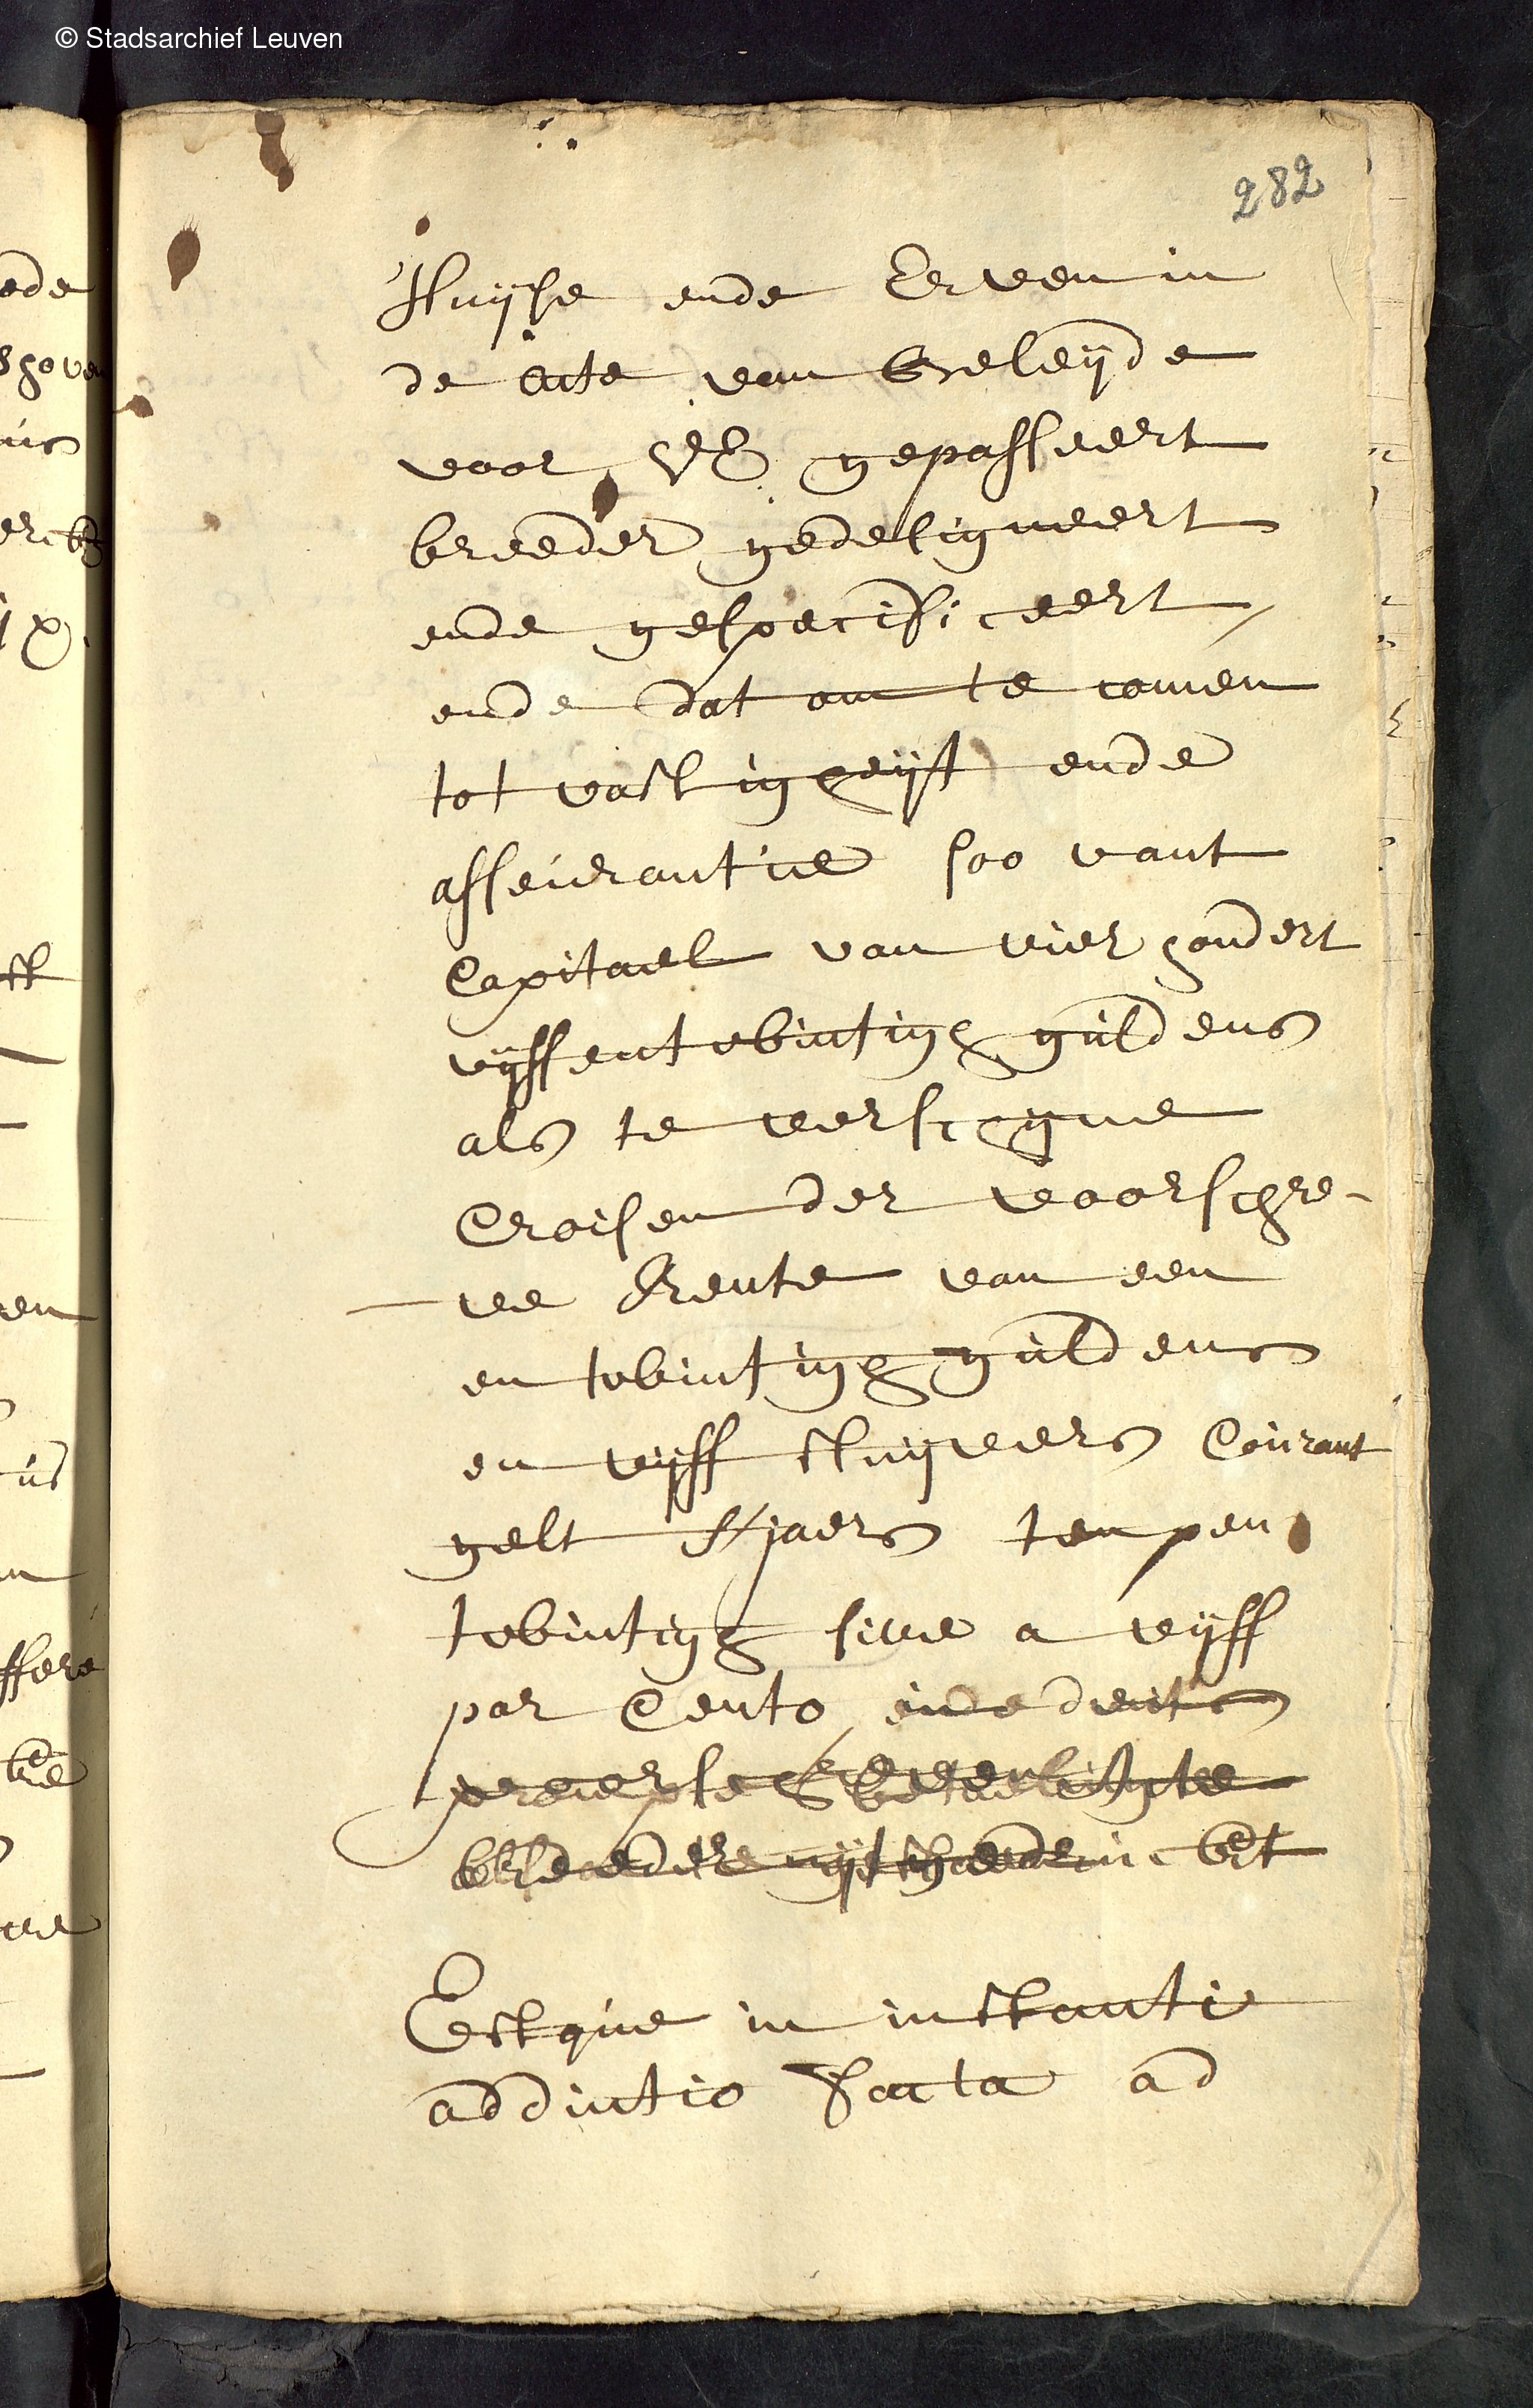 © Stadsarchief Leuven
282
Huijse ende Erven in
de acte van Beleijde
voor gepasseert
breeder gedesigneert
ende gespecificeert
ende dat om te comen
tot vasticheijt ende
asseurantie soo vant
Capitael van vier hondert
vijffentwintich guldens
als te verschyne
Croisen der voorschre-
ve Rente van een
en twintich guldens
en vijff stuijvers Courant
gelt sjaers ten pen
twintich sive a vijff
par Cento
Estque in instanti
additio facta ad